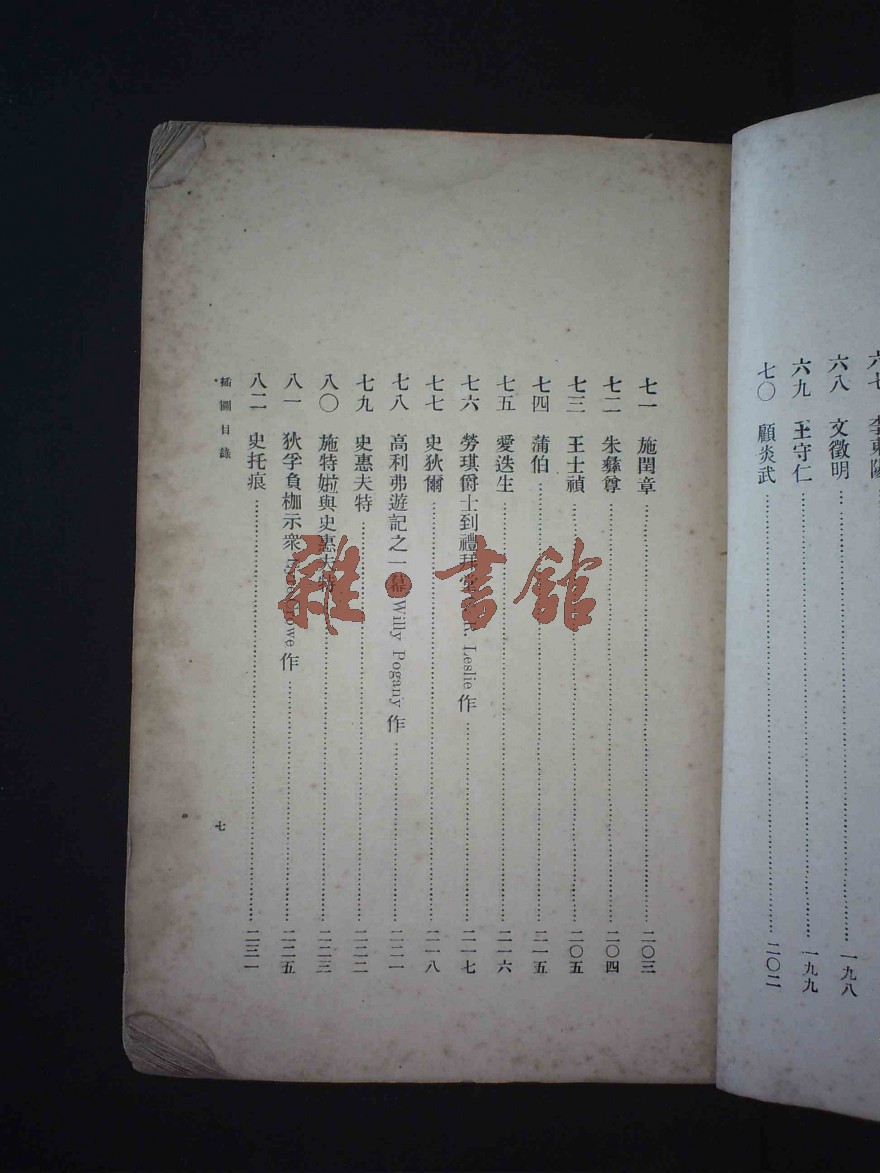 六七 李東陽
六八 文徵明 一九八
六九 王守仁 一九九
七〇 顧炎武 二〇二
七一 施閏章 二〇三
七二 朱彝尊 二〇四
七三 王士禎 二〇五
七四 蒲伯 二一五
七五 愛迭生 二一六
七六 勞琪爵士到禮拜 Leslie 作 二一七
七七 史狄爾 二一八
七八 高利弗遊記之一幕 Willy Pogany 作 二二一
七九 史惠夫特 二二二
八〇 施特娳與史惠夫特 二二三
八一 狄孚負枷示衆 Crowe 作 二二五
八二 史托痕 二三一
插圖目錄
七
雜·書館